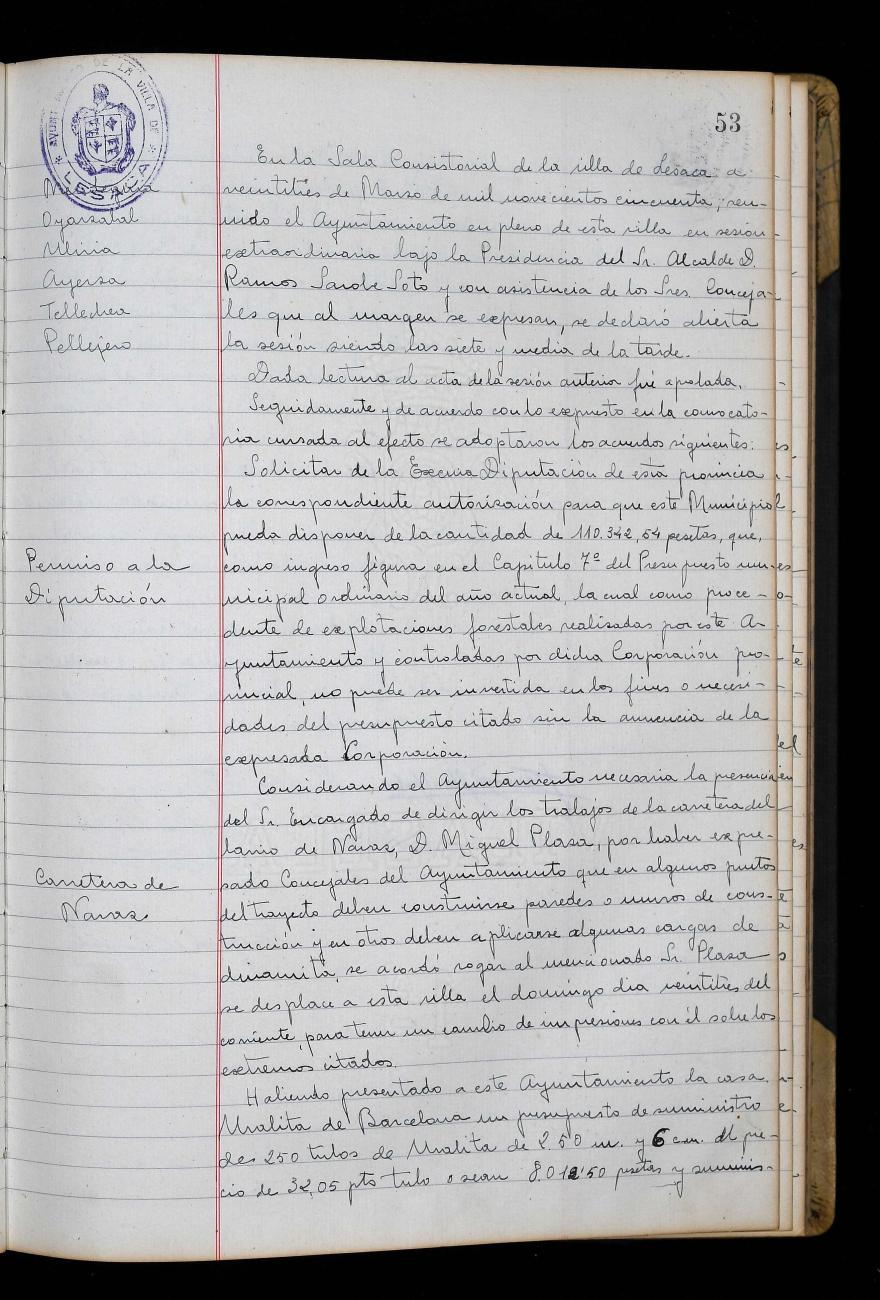 53
AYUNTAMIENTO DE LA VILLA DE
LESACA
Oyarzabal
Ulivia
Ayerza
Tellechea
Pellejero
En la Sala Consistorial de la villa de Lesaca a
veintitrés de Marzo de mil novecientos cincuenta, reu-
nido el Ayuntamiento en pleno de esta villa en sesión
extraordinaria bajo la Presidencia del Sr. Alcalde D.
Ramos Sarobe Soto y con asistencia de los Sres. Conceja-
les que al margen se expresan, se declaró abierta
la sesión siendo las siete y media de la tarde.
Dada lectura al acta de la sesión anterior fué aprobada.
Seguidamente y de acuerdo con lo expuesto en la convocato-
ria cursada al efecto se adoptaron los acuerdos siguientes:
Permiso a la
Diputación
Solicitar de la Excma Diputación de esta provincia
la correspondiente autorización para que este Municipio
pueda disponer de la cantidad de 110.342,54 pesetas, que,
como ingreso figura en el Capitulo 7º del Presupuesto mu-
nicipal ordinario del año actual, la cual como proce-
dente de explotaciones forestales realizadas por este A-
yuntamiento y controladas por dicha Corporación pro-
vincial, no puede ser invertida en los fines o necesi-
dades del presupuesto citado sin la anuencia de la
expresada Corporación.
Carretera de
Navaz
Considerando el Ayuntamiento necesaria la presencia
del Sr. Encargado de dirigir los trabajos de la carretera del
barrio de Navaz, D. Miguel Plaza, por haber expre-
sado Concejales del Ayuntamiento que en algunos puntos
del trayecto deben construirse paredes o muros de cons-
trucción y en otros deben aplicarse algunas cargas de
dinamita, se acordó rogar al mencionado Sr. Plaza
se desplace a esta villa el domingo dia veintitres del
corriente, para tener un cambio de impresiones con él sobre los
extremos citados.
Habiendo presentado a este Ayuntamiento la casa
Uralita de Barcelona un presupuesto de suministro
de 250 tubos de Uralita de 2.50 m. y 6 c.m. al pre-
cio de 32,05 pts tubo o sean 8.012'50 pesetas y suminis-